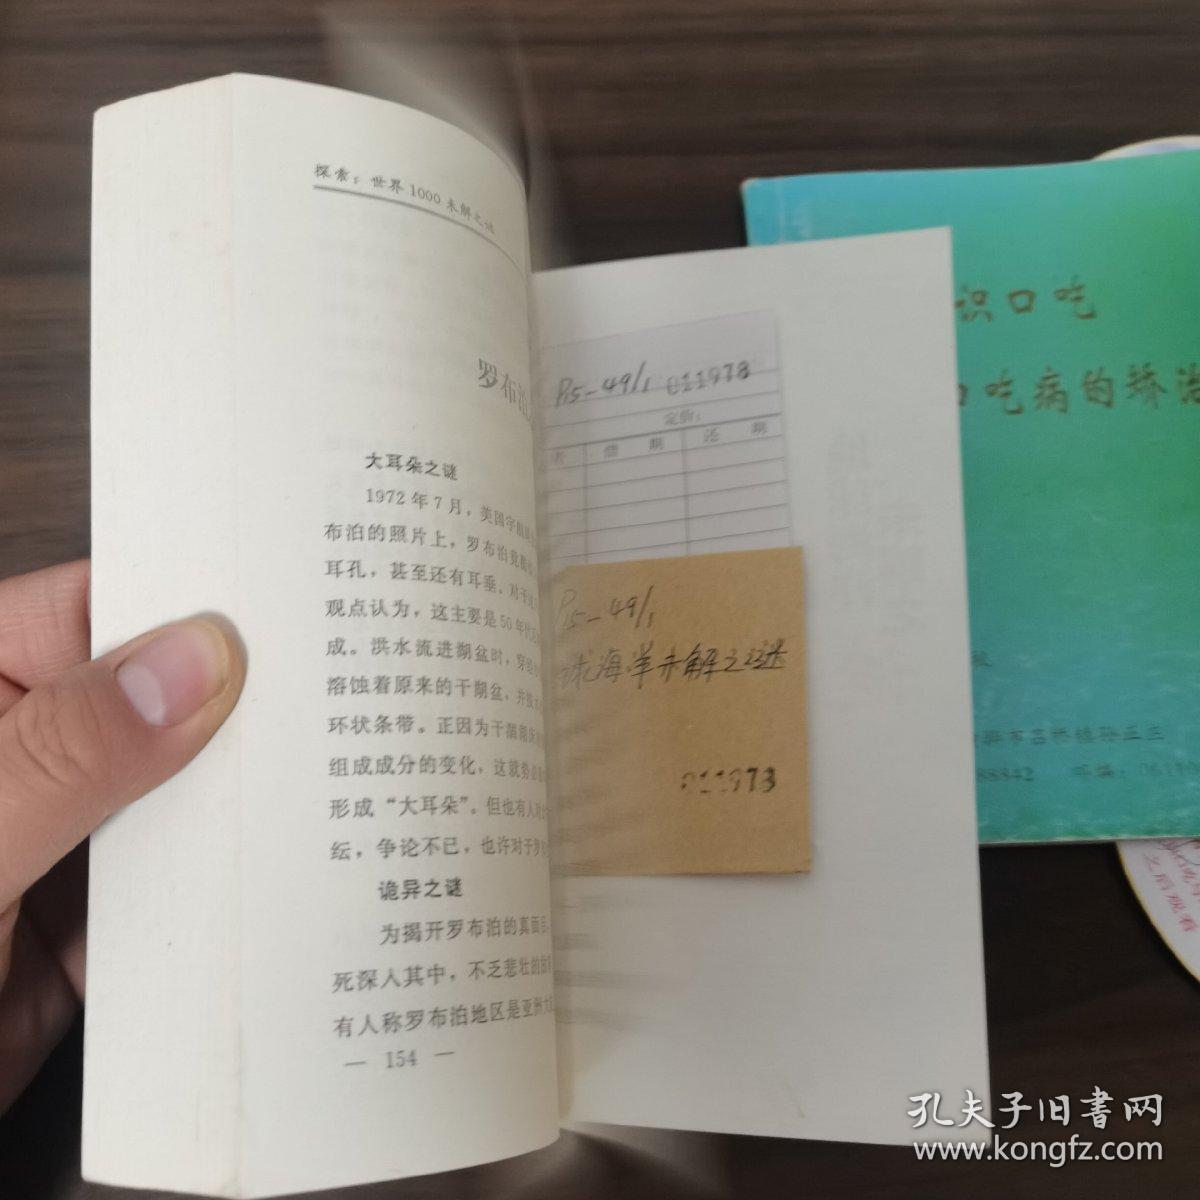 探索：世界1000未解之谜
罗布泊
大耳朵之谜
1972年7月，美国宇航
布泊的照片上，罗布泊竟
耳孔，甚至还有耳垂。对于
观点认为，这主要是50年代
成。洪水流进湖盆时，穿经
溶蚀着原来的干湖盆，并按
环状条带。正因为干涸湖床
组成成分的变化，这就势必
形成“大耳朵”。但也有人对
纭，争论不已，也许对于罗
诡异之谜
为揭开罗布泊的真面目，
死深入其中，不乏悲壮的故事
有人称罗布泊地区是亚洲大
— 154 —
P15-49/1 011978
定价：
者 借期 还期
P15-49/1
球海洋未解之谜
011978
识口吃
口吃病的矫治
市吕桥镇孙正三
88842 邮编：0611
之后服看
孔夫子旧书网
www.kongfz.com